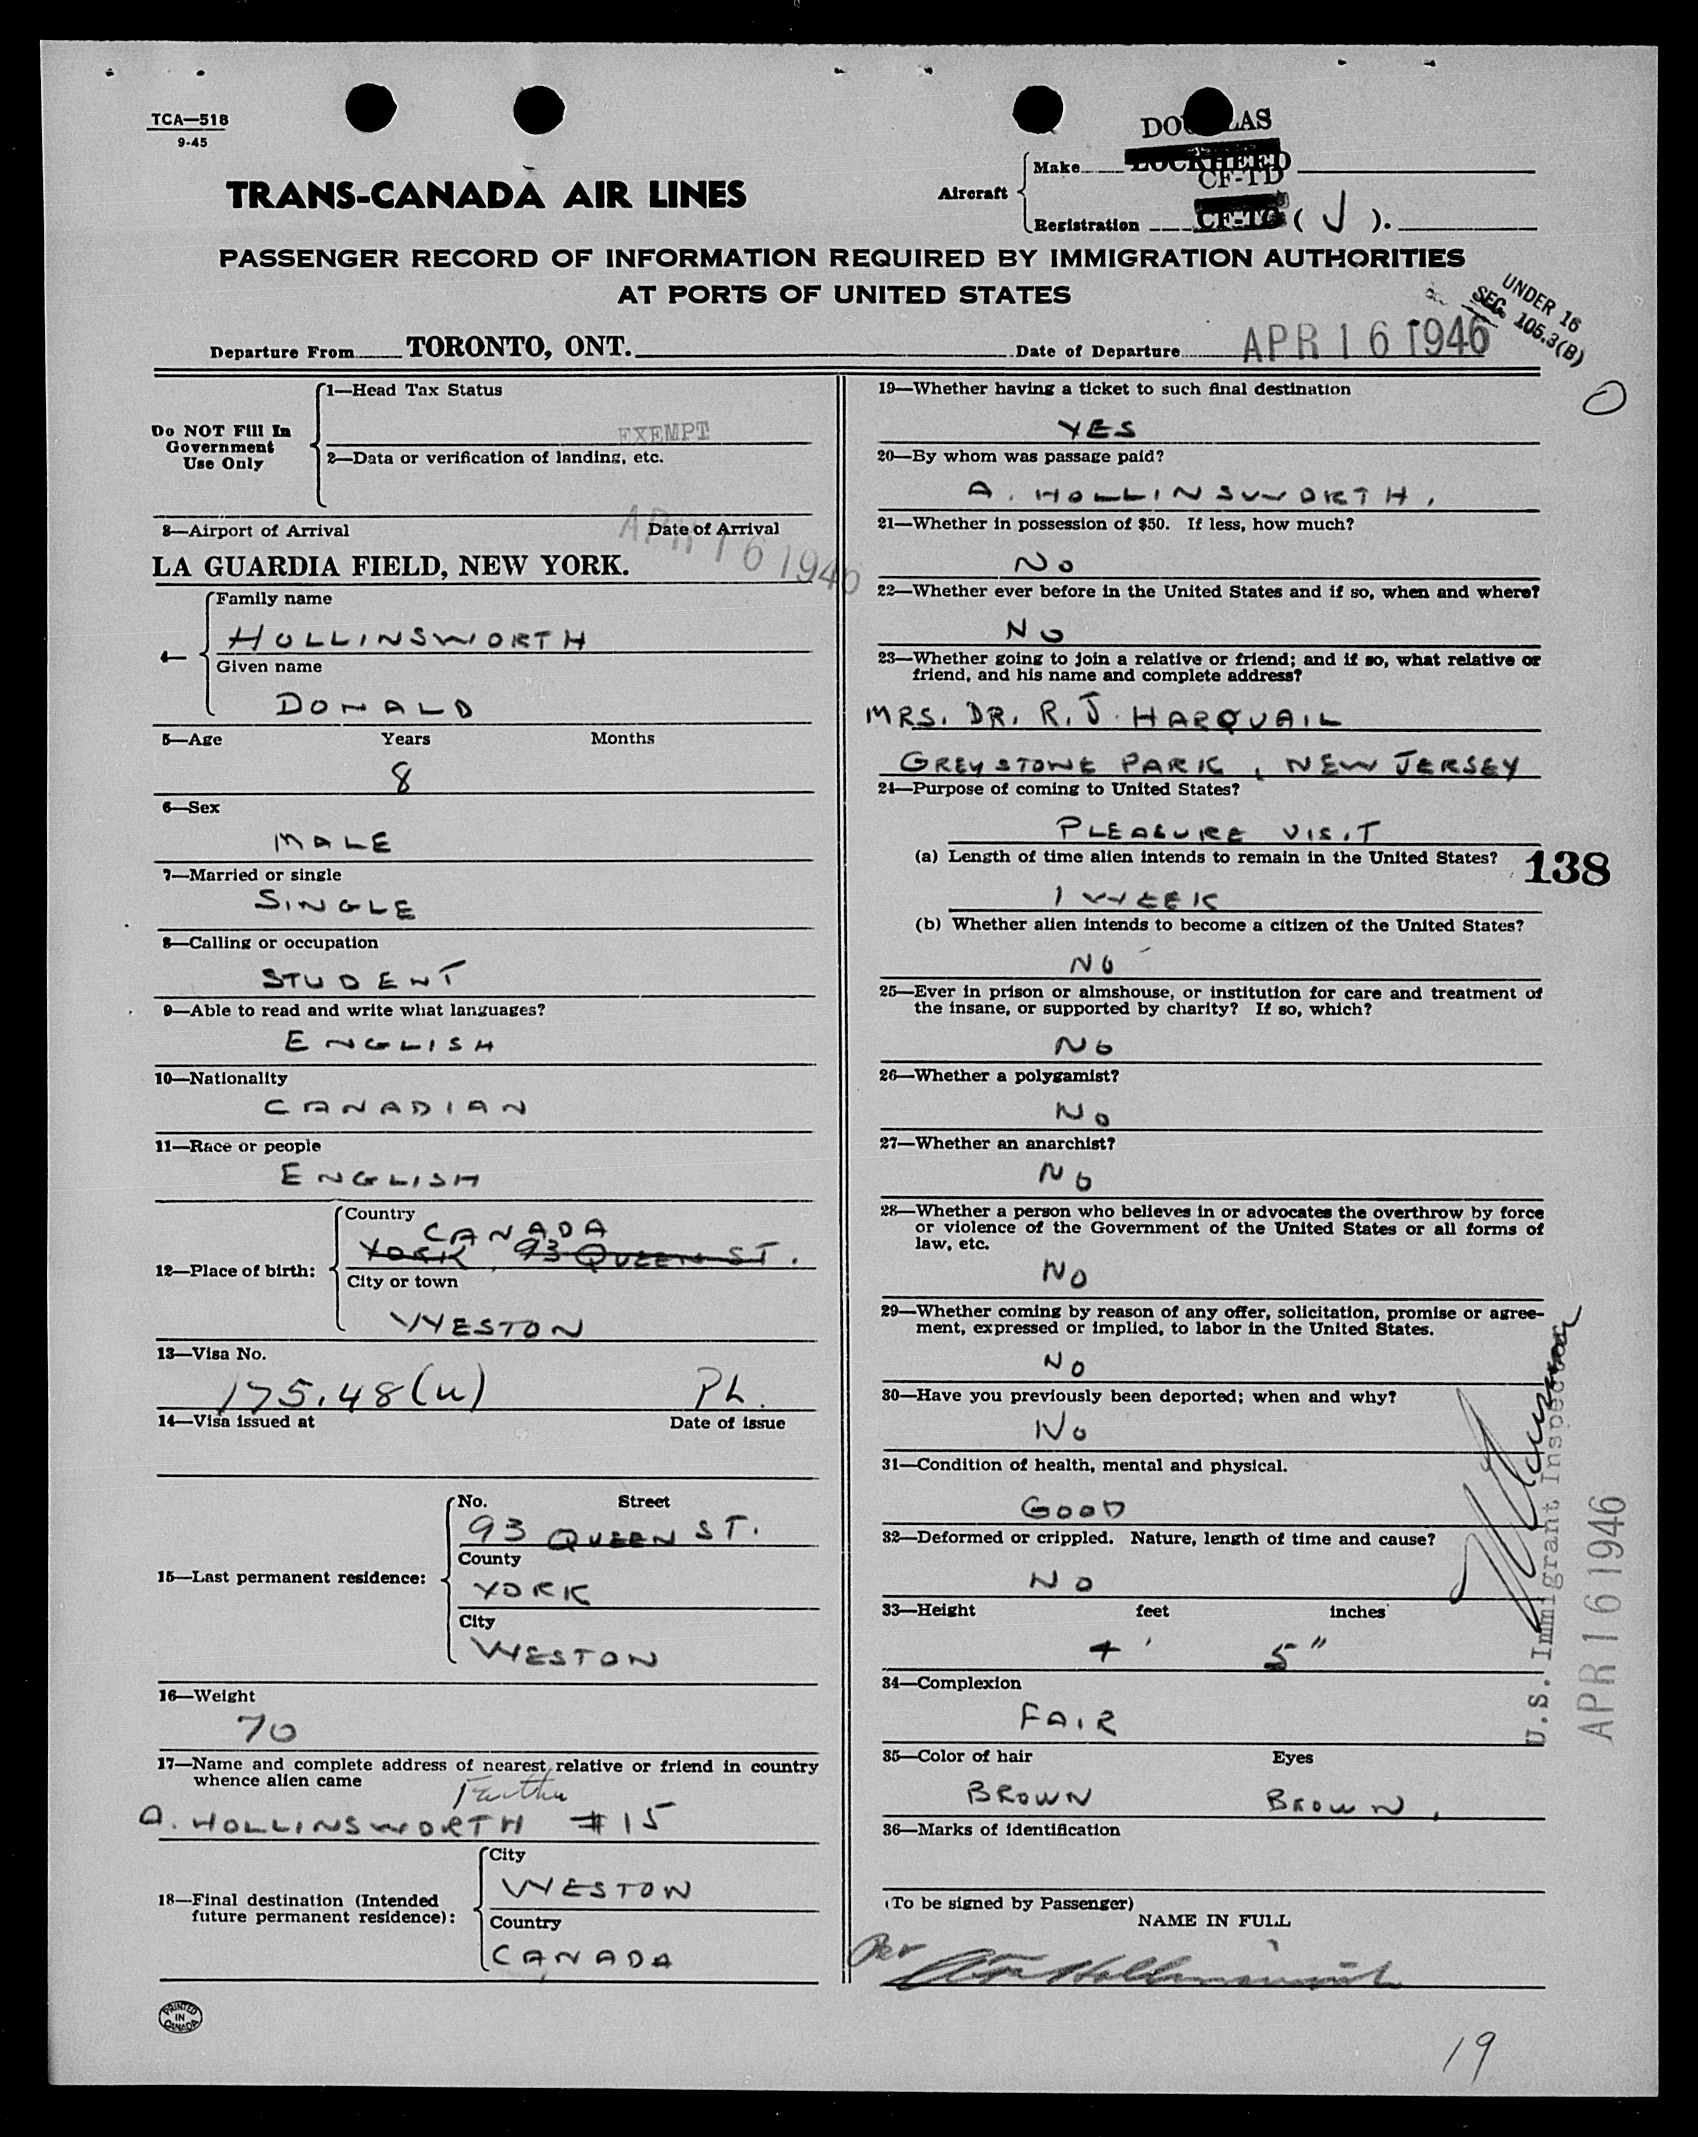 TCA—518
9-45
DOUGLAS
Aircraft
Make LOCKHEED
CF-TD
Registration CF-TC ( J ).
TRANS-CANADA AIR LINES
PASSENGER RECORD OF INFORMATION REQUIRED BY IMMIGRATION AUTHORITIES
AT PORTS OF UNITED STATES
UNDER 16
SEC. 105.3(B)
Departure From TORONTO, ONT. Date of Departure APR 16 1946
Do NOT Fill In
Government
Use Only
1—Head Tax Status
EXEMPT
2—Data or verification of landing, etc.
3—Airport of Arrival Date of Arrival
APR 16 1946
LA GUARDIA FIELD, NEW YORK.
4—
Family name
HOLLINSWORTH
Given name
DONALD
5—Age Years Months
8
6—Sex
MALE
7—Married or single
SINGLE
8—Calling or occupation
STUDENT
9—Able to read and write what languages?
ENGLISH
10—Nationality
CANADIAN
11—Race or people
ENGLISH
12—Place of birth:
Country
CANADA
YORK, 93 QUEEN ST.
City or town
WESTON
13—Visa No.
175.48(u) Ph.
14—Visa issued at Date of issue
15—Last permanent residence:
No. Street
93 QUEEN ST.
County
YORK
City
WESTON
16—Weight
70
17—Name and complete address of nearest relative or friend in country
whence alien came
Father
A. HOLLINSWORTH #15
18—Final destination (Intended
future permanent residence):
City
WESTON
Country
CANADA
PRINTED
IN
CANADA
19—Whether having a ticket to such final destination
YES
20—By whom was passage paid?
A. HOLLINSWORTH.
21—Whether in possession of $50. If less, how much?
NO
22—Whether ever before in the United States and if so, when and where?
NO
23—Whether going to join a relative or friend; and if so, what relative or
friend, and his name and complete address?
MRS. DR. R. J. HARQUAIL
GREYSTONE PARK, NEW JERSEY
24—Purpose of coming to United States?
PLEASURE VISIT
(a) Length of time alien intends to remain in the United States?
138
1 WEEK
(b) Whether alien intends to become a citizen of the United States?
NO
25—Ever in prison or almshouse, or institution for care and treatment of
the insane, or supported by charity? If so, which?
NO
26—Whether a polygamist?
NO
27—Whether an anarchist?
NO
28—Whether a person who believes in or advocates the overthrow by force
or violence of the Government of the United States or all forms of
law, etc.
NO
29—Whether coming by reason of any offer, solicitation, promise or agree-
ment, expressed or implied, to labor in the United States.
NO
30—Have you previously been deported; when and why?
NO
31—Condition of health, mental and physical.
GOOD
32—Deformed or crippled. Nature, length of time and cause?
NO
33—Height feet inches
4' 5"
34—Complexion
FAIR
35—Color of hair Eyes
BROWN BROWN,
36—Marks of identification
U.S. Immigrant Inspector
APR 16 1946
(To be signed by Passenger)
NAME IN FULL
Per
Hollinsworth
19